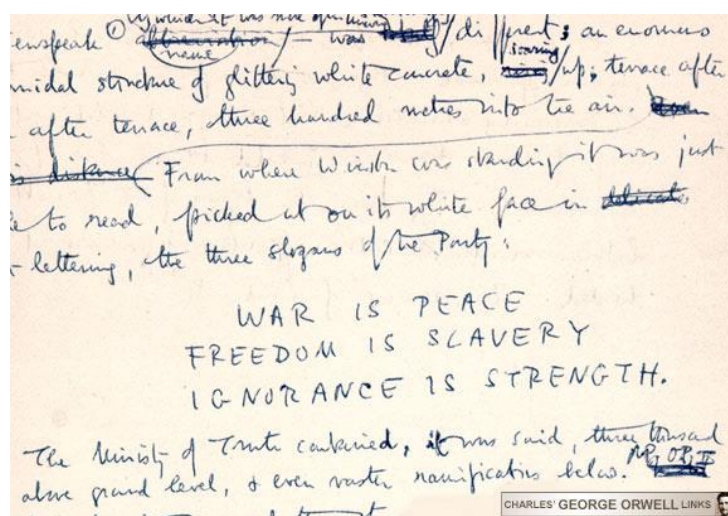 by which it was
ewspeak ① abbreviation name – was itself / different; an enormous
midal structure of glittering white concrete, rising soaring / up, terrace after
after terrace, three hundred metres into the air. Even
is distance From where Winston was standing it was just
le to read, picked out on its white face in delicate
lettering, the three slogans of the Party:
WAR IS PEACE
FREEDOM IS SLAVERY
IGNORANCE IS STRENGTH.
The Ministry of Truth contained, it was said, three thousand
above ground level, & even vaster ramifications below.
CHARLES' GEORGE ORWELL LINKS